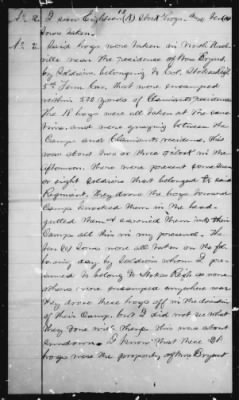 No 2. I saw Eighteen (18) Stock hogs and ten (10)
Sows taken.
No 2. Said hogs were taken in North Nash-
ville near the residence of Mrs Bryant,
by Soldiers belonging to Col. Stokes Regt
5th Tenn Cav. that were encamped
within 500 yards of Claimants residence
The 18 hogs were all taken at the same
time and were grazing between the
Camp and Claimants residence, this
was about two or three o'clock in the
afternoon. there were present some seven
or eight soldiers that belonged to said
Regiment, they drove the hogs toward
Camp knocked them in the head
gutted them & carried them into their
Camp all this in my presence. The
ten (10) Sows were all taken on the fol-
lowing day by Soldiers whom I pre-
sumed to belong to Stokes Regt as none
others were encamped anywhere near
they drove these hogs off in the direction
of their Camp but I did not see what
they done with them this was about
sundown. I know that these 28
hogs were the property of Mrs Bryant